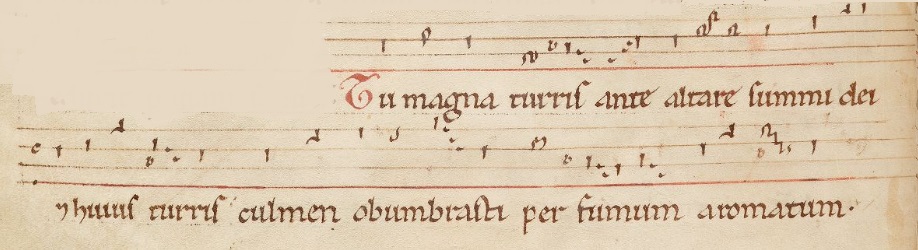 Tu magna turris ante altare summi dei
⁊ huius turris culmen obumbrasti per fumum aromatum·